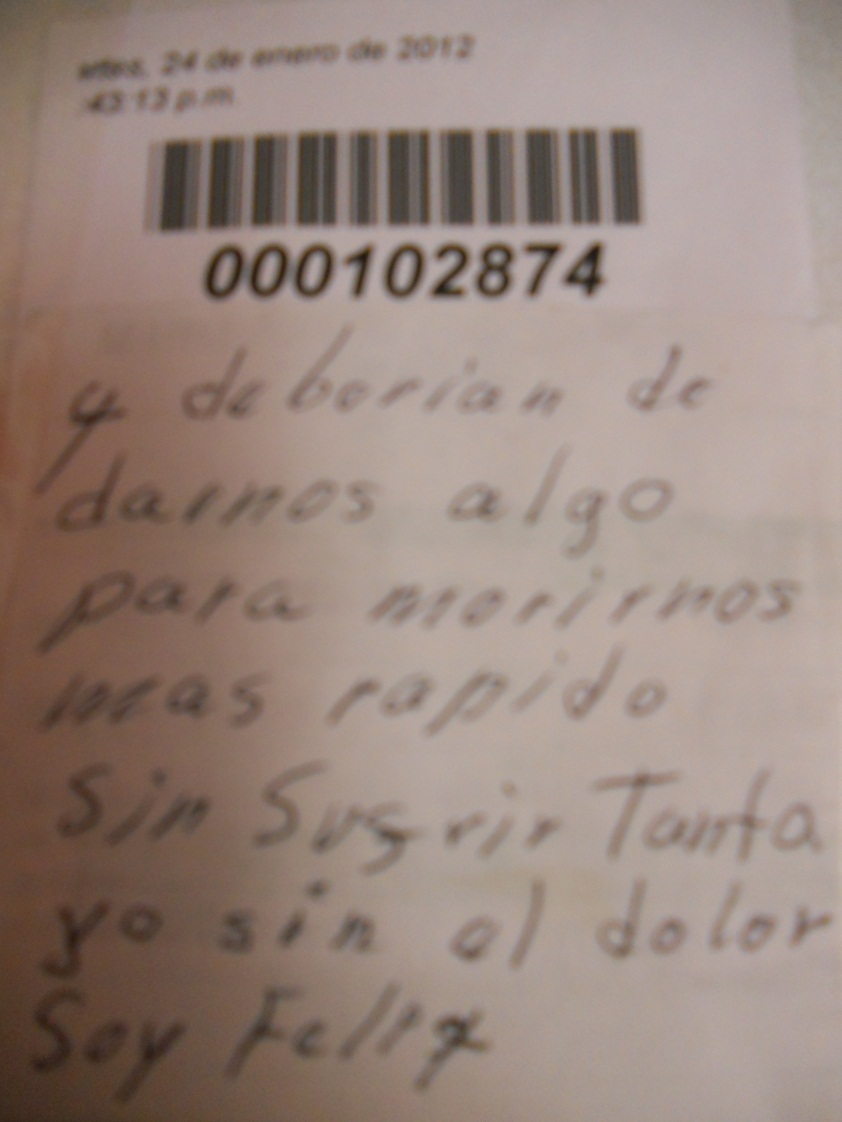 rtes, 24 de enero de 2012
:43:13 p.m.
000102874
y deberian de
darnos algo
para morirnos
mas rapido
Sin Sufrir Tanta
yo sin el dolor
Soy Feliz